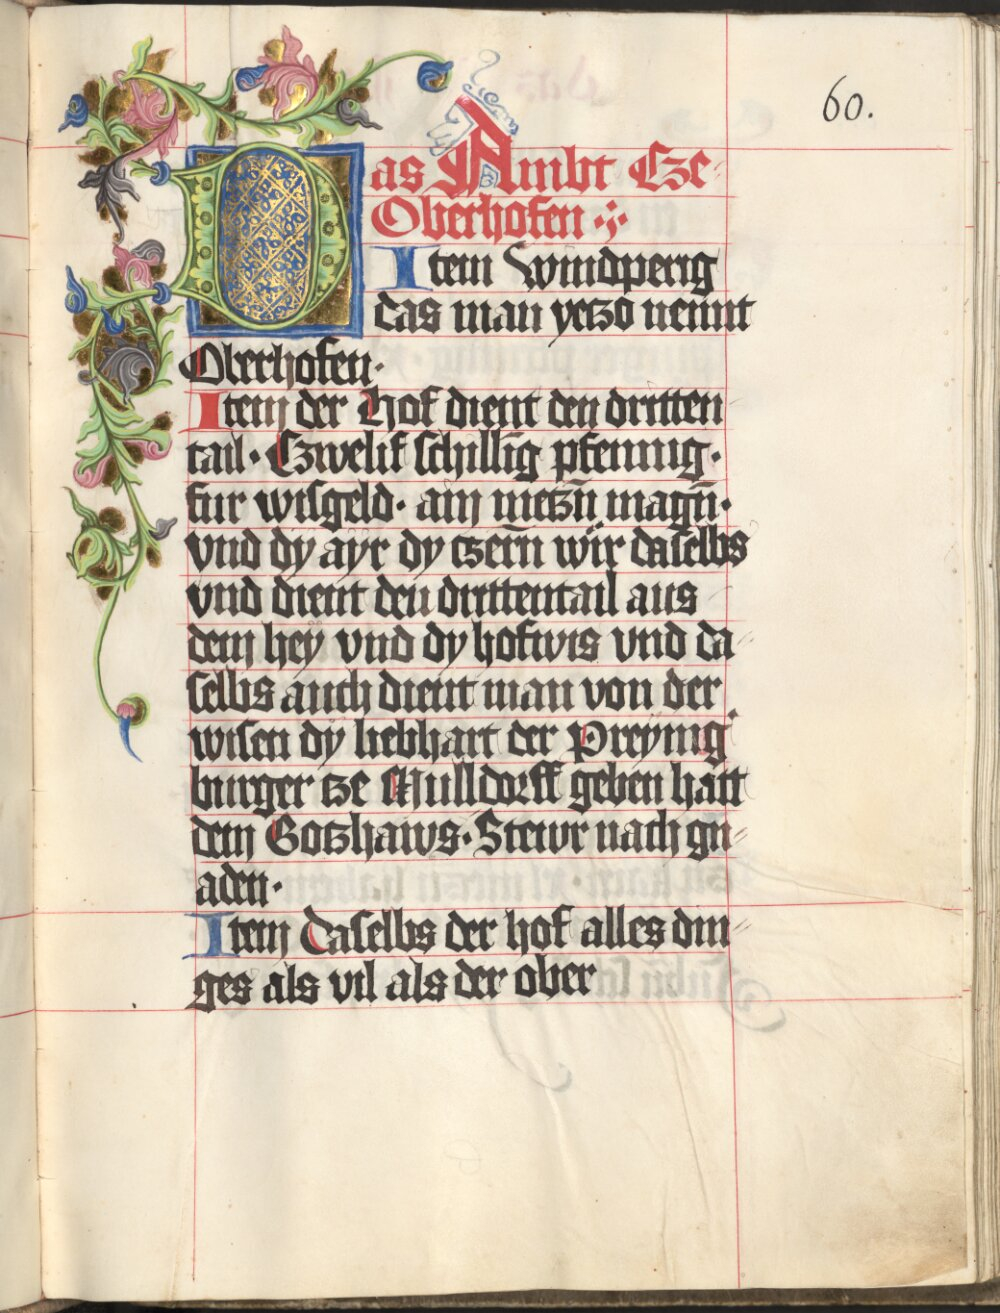 60.
Das Ambt Cze
Oberhofen
Item Windperig
das man yetzo nennt
Oberhofen·
Item der Hof dient den dritten
tail· Czwelif schilling pfennig·
fur wisgeld· ain metzn̄ magn̄·
vnd dy ayr dy tzern̄ wir daselbs
vnd dient den drittentail aus
dem hey vnd dy hofwis vnd da⸗
selbs auch dient man von der
wisen dy liebhart der Preying
burger tze Mulldorff geben hatt
dem Gotzhaws· Stewr nach gn⸗
aden·
Item Daselbs der hof alles din⸗
ges als vil als der ober